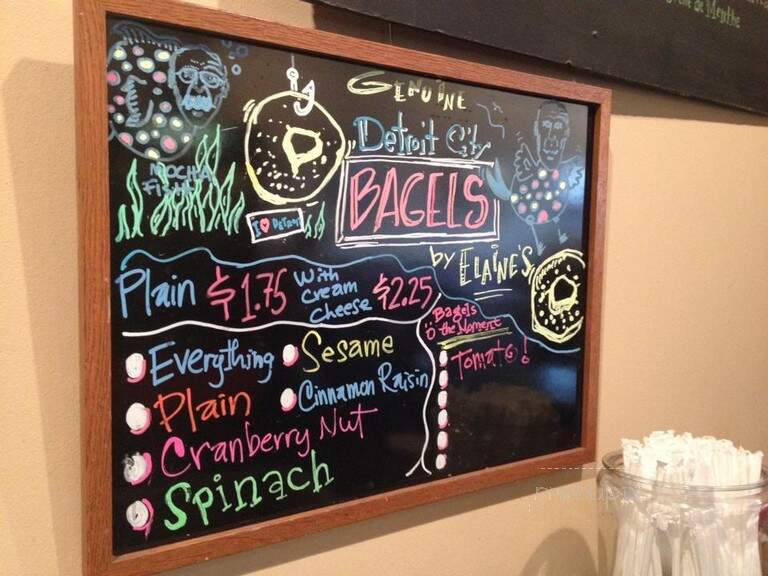 de Menthe
GENUINE
Detroit City
BAGELS
by ELAINE'S
MOCHA
FISH
I ♥ DETROIT
Plain $1.75 With cream cheese $2.25
Everything
Sesame
Plain
Cinnamon Raisin
Cranberry Nut
Spinach
Bagels
O' the Moment
Tomato!